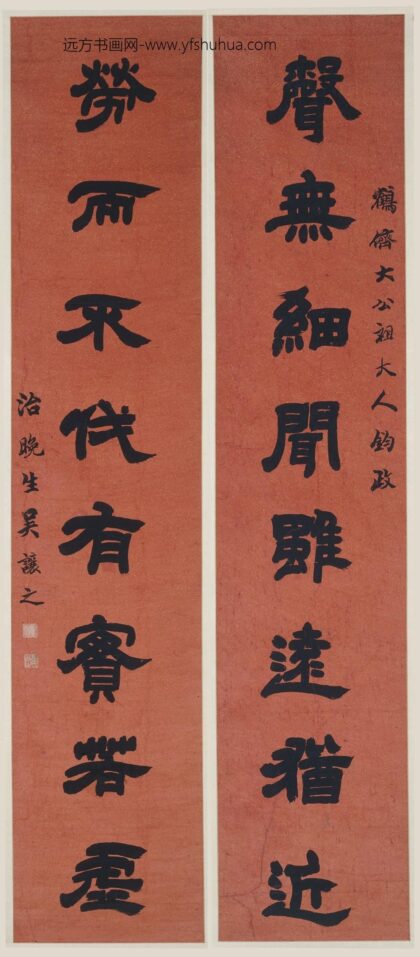 远方书画网-www.yfshuhua.com
鶴儕大公祖大人鈞政
聲無細聞雖遠猶近
勞而不伐有實若虛
治晚生吳讓之